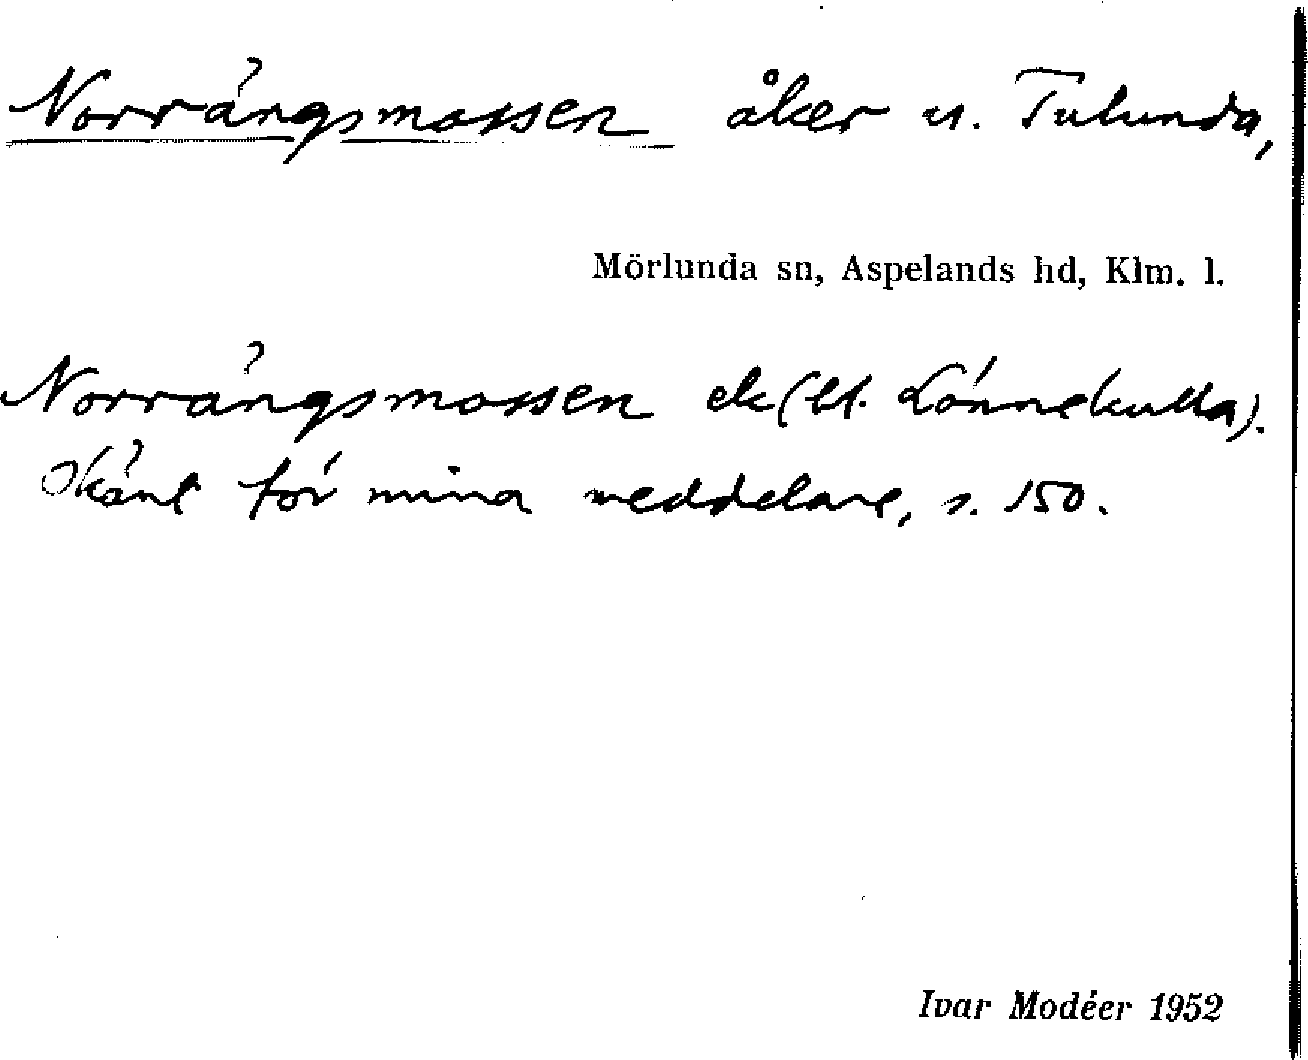 Norrängsmossen åker u. Tulunda,
Mörlunda sn, Aspelands hd, Klm. l.
Norrängsmossen ek (bl. Lönnekulla).
Okänt för mina meddelare, s. 150.
Ivar Modéer 1952